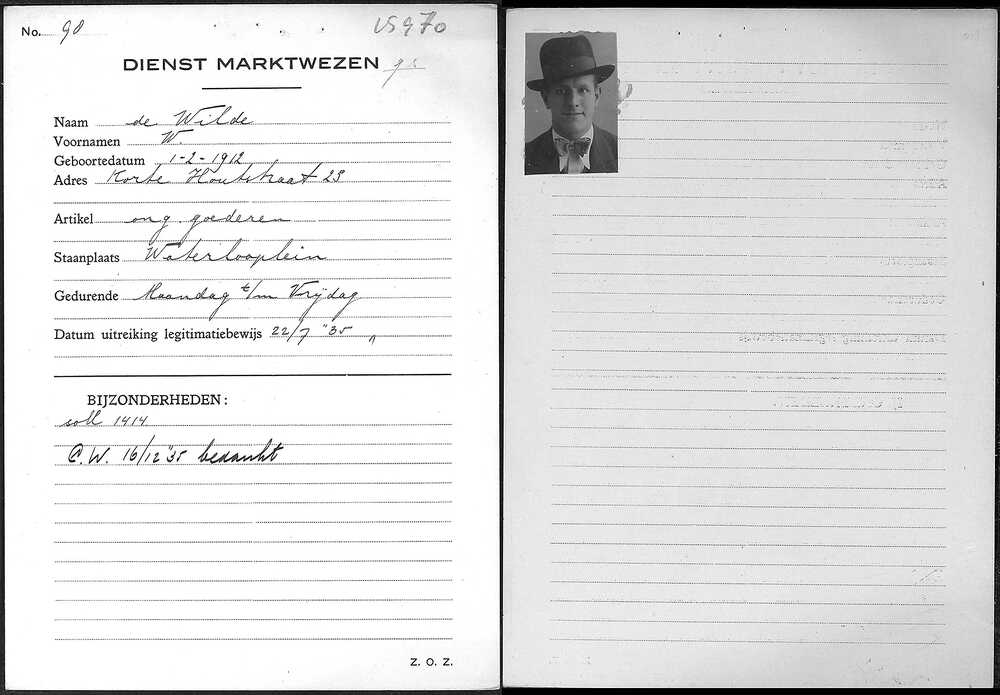 No. 90
DIENST MARKTWEZEN
Naam de Wilde
Voornamen W.
Geboortedatum 1-2-1912
Adres Korte Houtstraat 23
Artikel ong. goederen
Staanplaats Waterlooplein
Gedurende Maandag t/m Vrijdag
Datum uitreiking legitimatiebewijs 22/7 "35
BIJZONDERHEDEN:
soll 1414
C.W. 16/12 "35 bedankt
Z. O. Z.